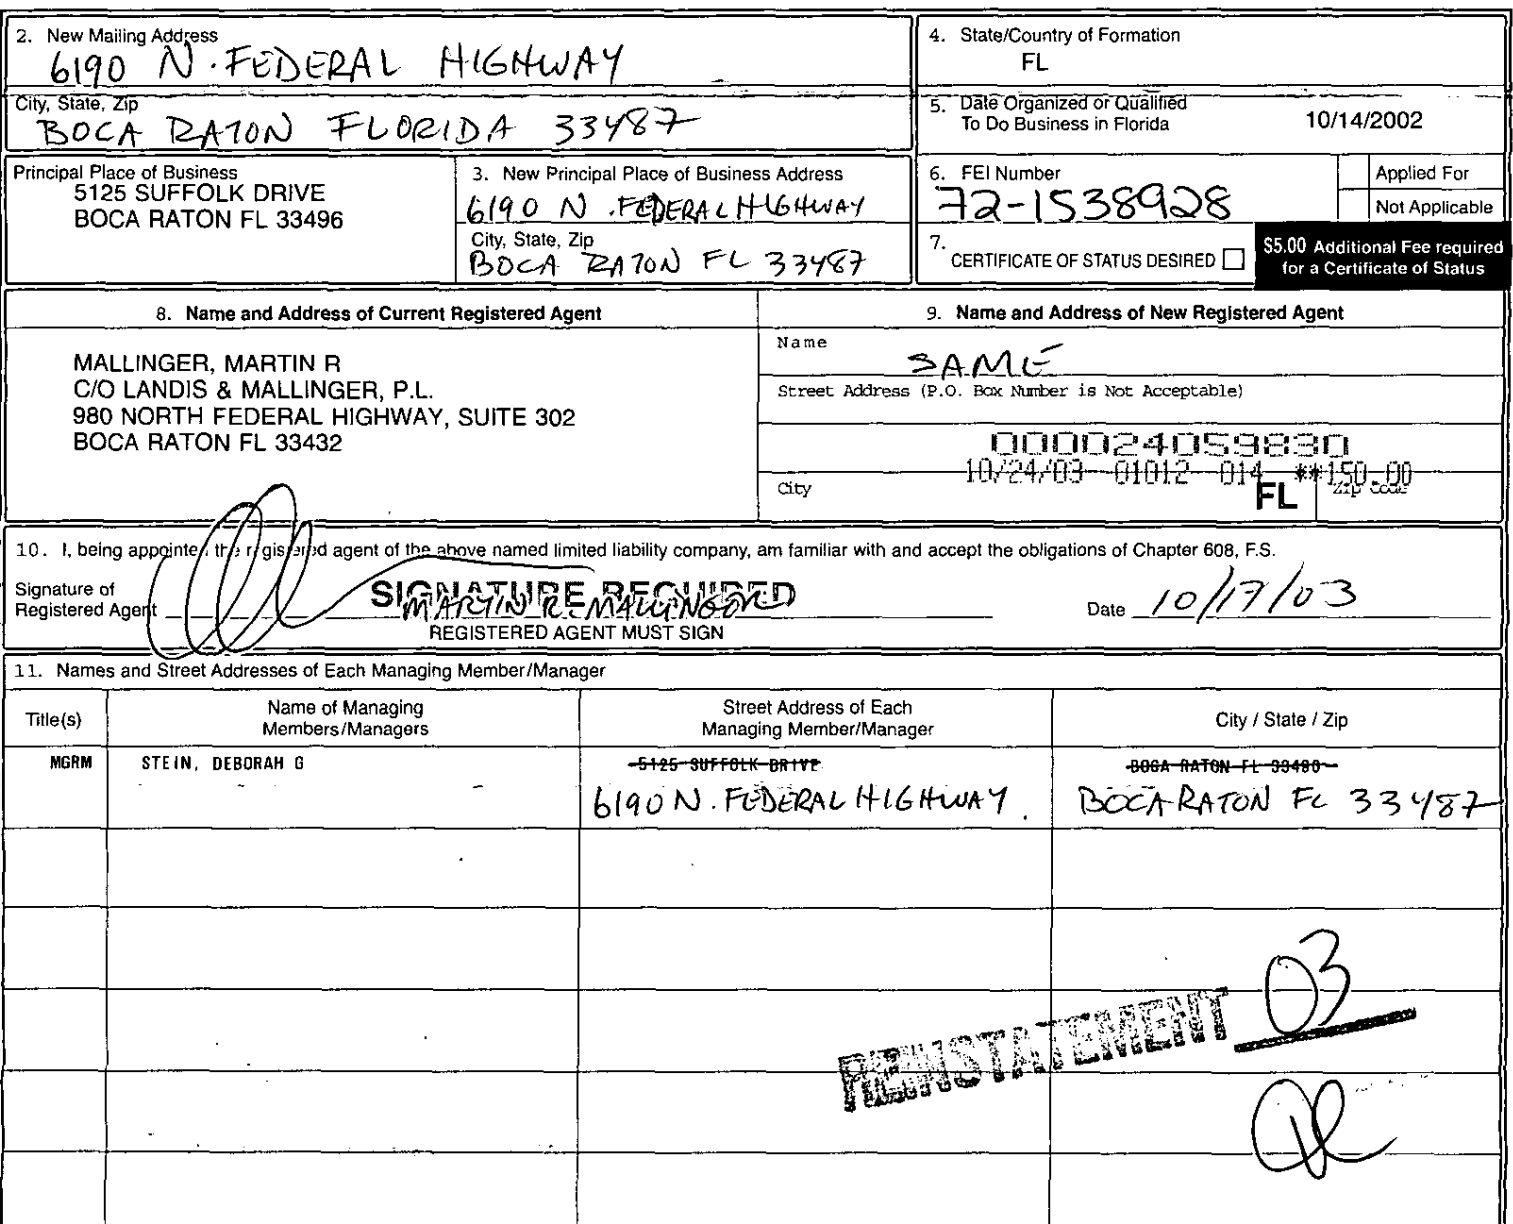 2. New Mailing Address
6190 N. FEDERAL HIGHWAY
City, State, Zip
BOCA RATON FLORIDA 33487
4. State/Country of Formation
FL
5. Date Organized or Qualified
To Do Business in Florida
10/14/2002
Principal Place of Business
5125 SUFFOLK DRIVE
BOCA RATON FL 33496
3. New Principal Place of Business Address
6190 N. FEDERAL HIGHWAY
City, State, Zip
BOCA RATON FL 33487
6. FEI Number
72-1538928
Applied For
Not Applicable
7. CERTIFICATE OF STATUS DESIRED
$5.00 Additional Fee required
for a Certificate of Status
8. Name and Address of Current Registered Agent
MALLINGER, MARTIN R
C/O LANDIS & MALLINGER, P.L.
980 NORTH FEDERAL HIGHWAY, SUITE 302
BOCA RATON FL 33432
9. Name and Address of New Registered Agent
Name
SAME
Street Address (P.O. Box Number is Not Acceptable)
000024059830
10/24/03--01012--014 **150.00
City
FL
Zip Code
10. I, being appointed the registered agent of the above named limited liability company, am familiar with and accept the obligations of Chapter 608, F.S.
Signature of
Registered Agent
SIGNATURE REQUIRED
MARTIN R. MALLINGER
REGISTERED AGENT MUST SIGN
Date 10/17/03
11. Names and Street Addresses of Each Managing Member/Manager
Title(s)
Name of Managing
Members/Managers
Street Address of Each
Managing Member/Manager
City / State / Zip
MGRM
STEIN, DEBORAH G
5125 SUFFOLK DRIVE
6190 N. FEDERAL HIGHWAY
BOCA RATON FL
BOCA RATON FL 33487
REINSTATEMENT 03